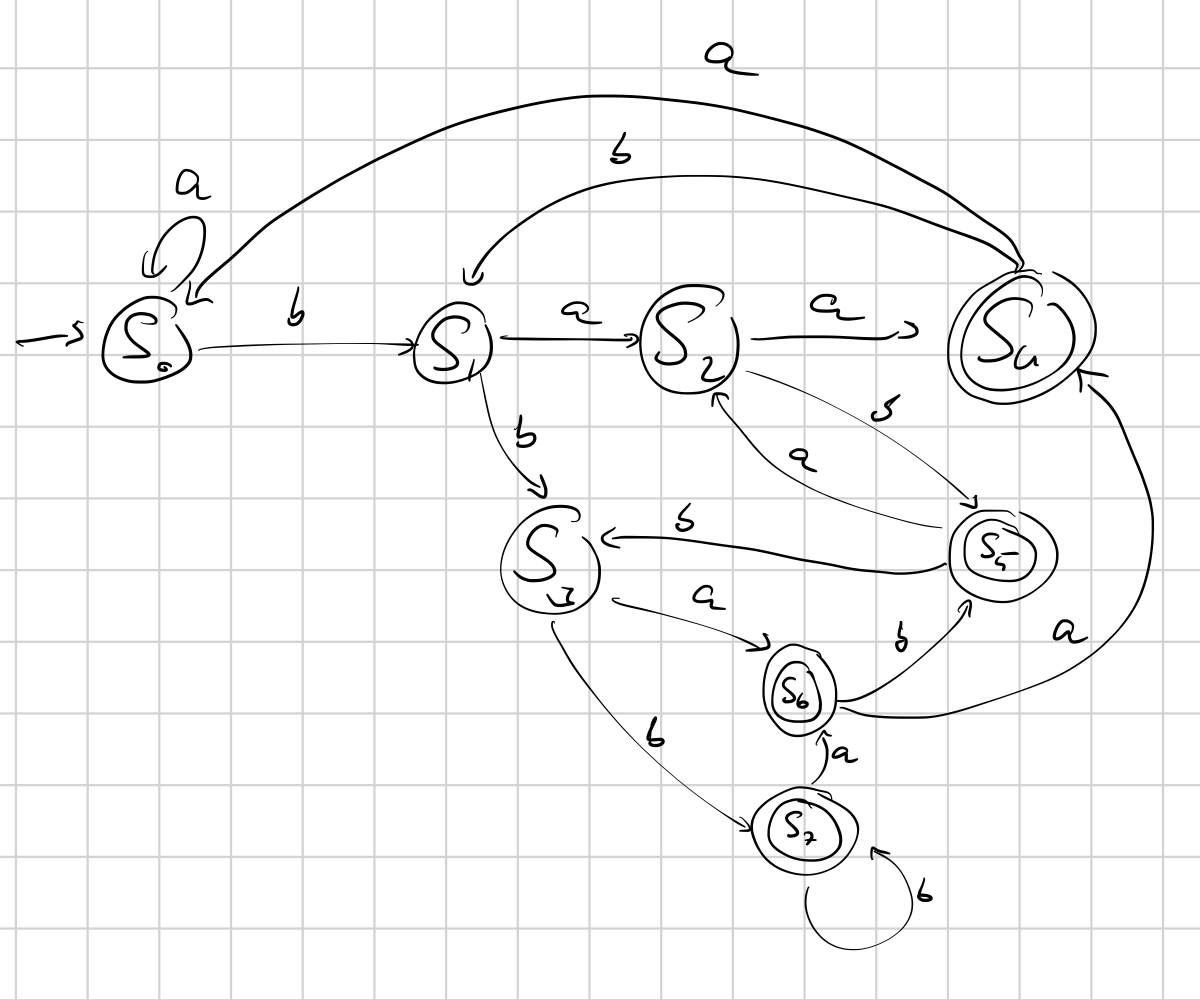 a
b
a
S₀
b
S₁
a
S₂
a
S₄
b
b
a
S₃
b
S₅
a
b
a
S₆
b
a
S₇
b